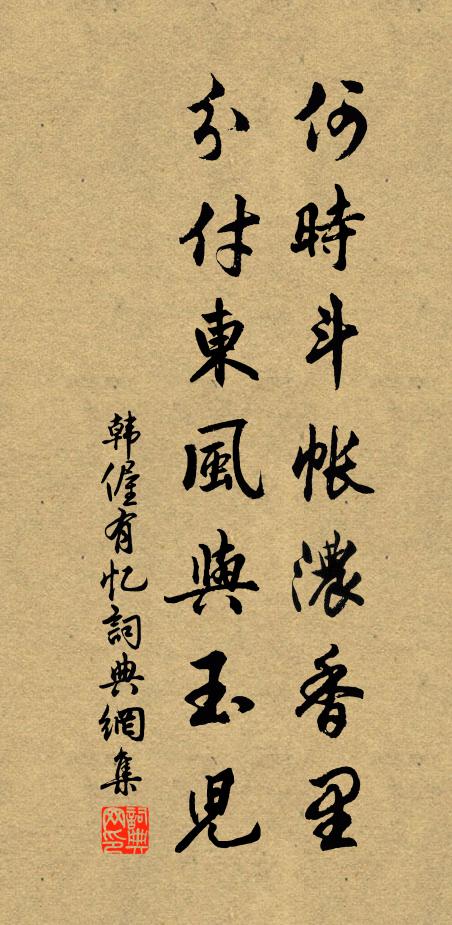 何時斗帳濃香里
分付東風與玉兒
韩偓有忆詞典網集
詞典網印